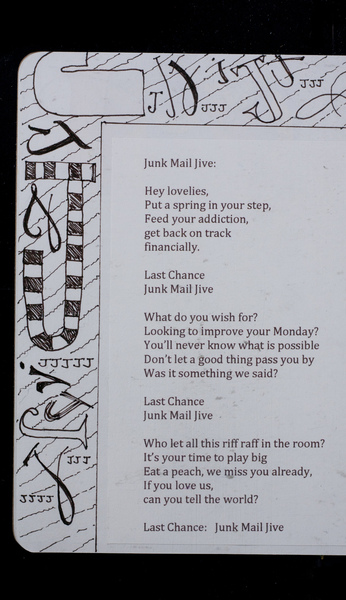 J J JJJ J J JJJ
J
J
J
JJJJJ
J J
J
JJJ
J
JJJJ
Junk Mail Jive:
Hey lovelies,
Put a spring in your step,
Feed your addiction,
get back on track
financially.
Last Chance
Junk Mail Jive
What do you wish for?
Looking to improve your Monday?
You'll never know what is possible
Don't let a good thing pass you by
Was it something we said?
Last Chance
Junk Mail Jive
Who let all this riff raff in the room?
It's your time to play big
Eat a peach, we miss you already,
If you love us,
can you tell the world?
Last Chance:   Junk Mail Jive